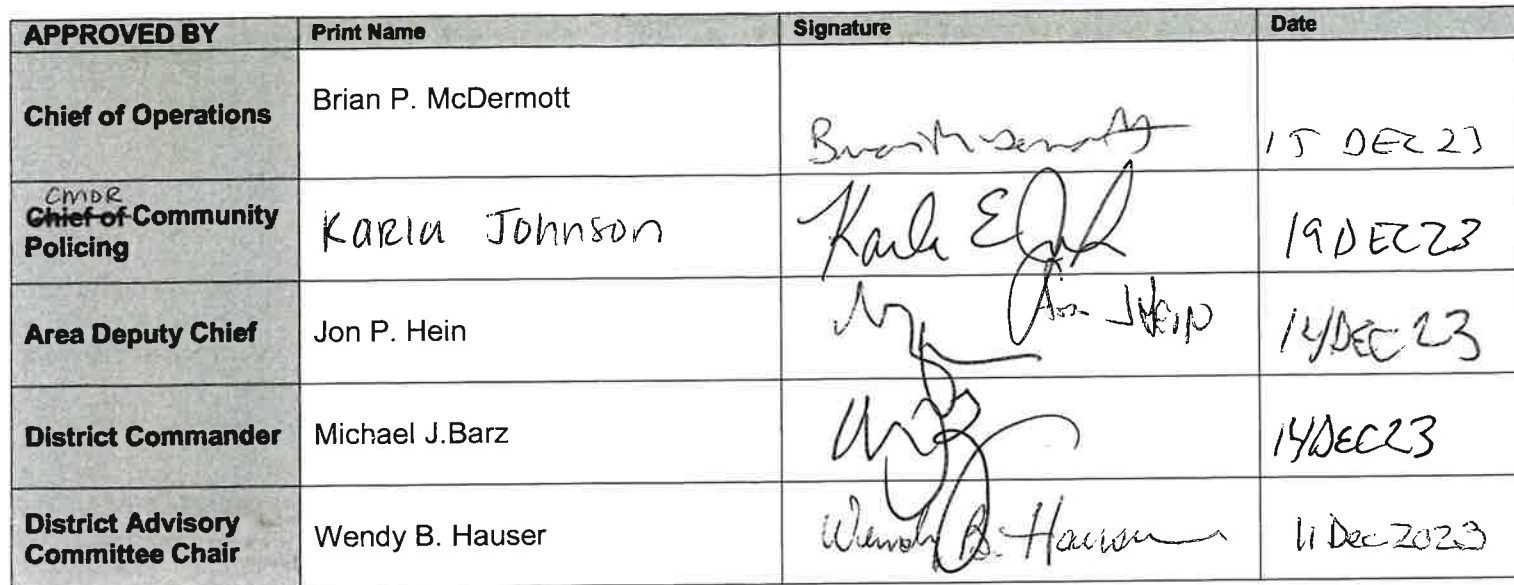 APPROVED BY Print Name Signature Date
Chief of Operations Brian P. McDermott 15 DEC 23
CMDR
Chief of Community
Policing Karla Johnson Karla E 19 DEC 23
Area Deputy Chief Jon P. Hein Jon HEIN 14 DEC 23
District Commander Michael J.Barz 14 DEC 23
District Advisory
Committee Chair Wendy B. Hauser Wendy B. Hauser 11 Dec 2023